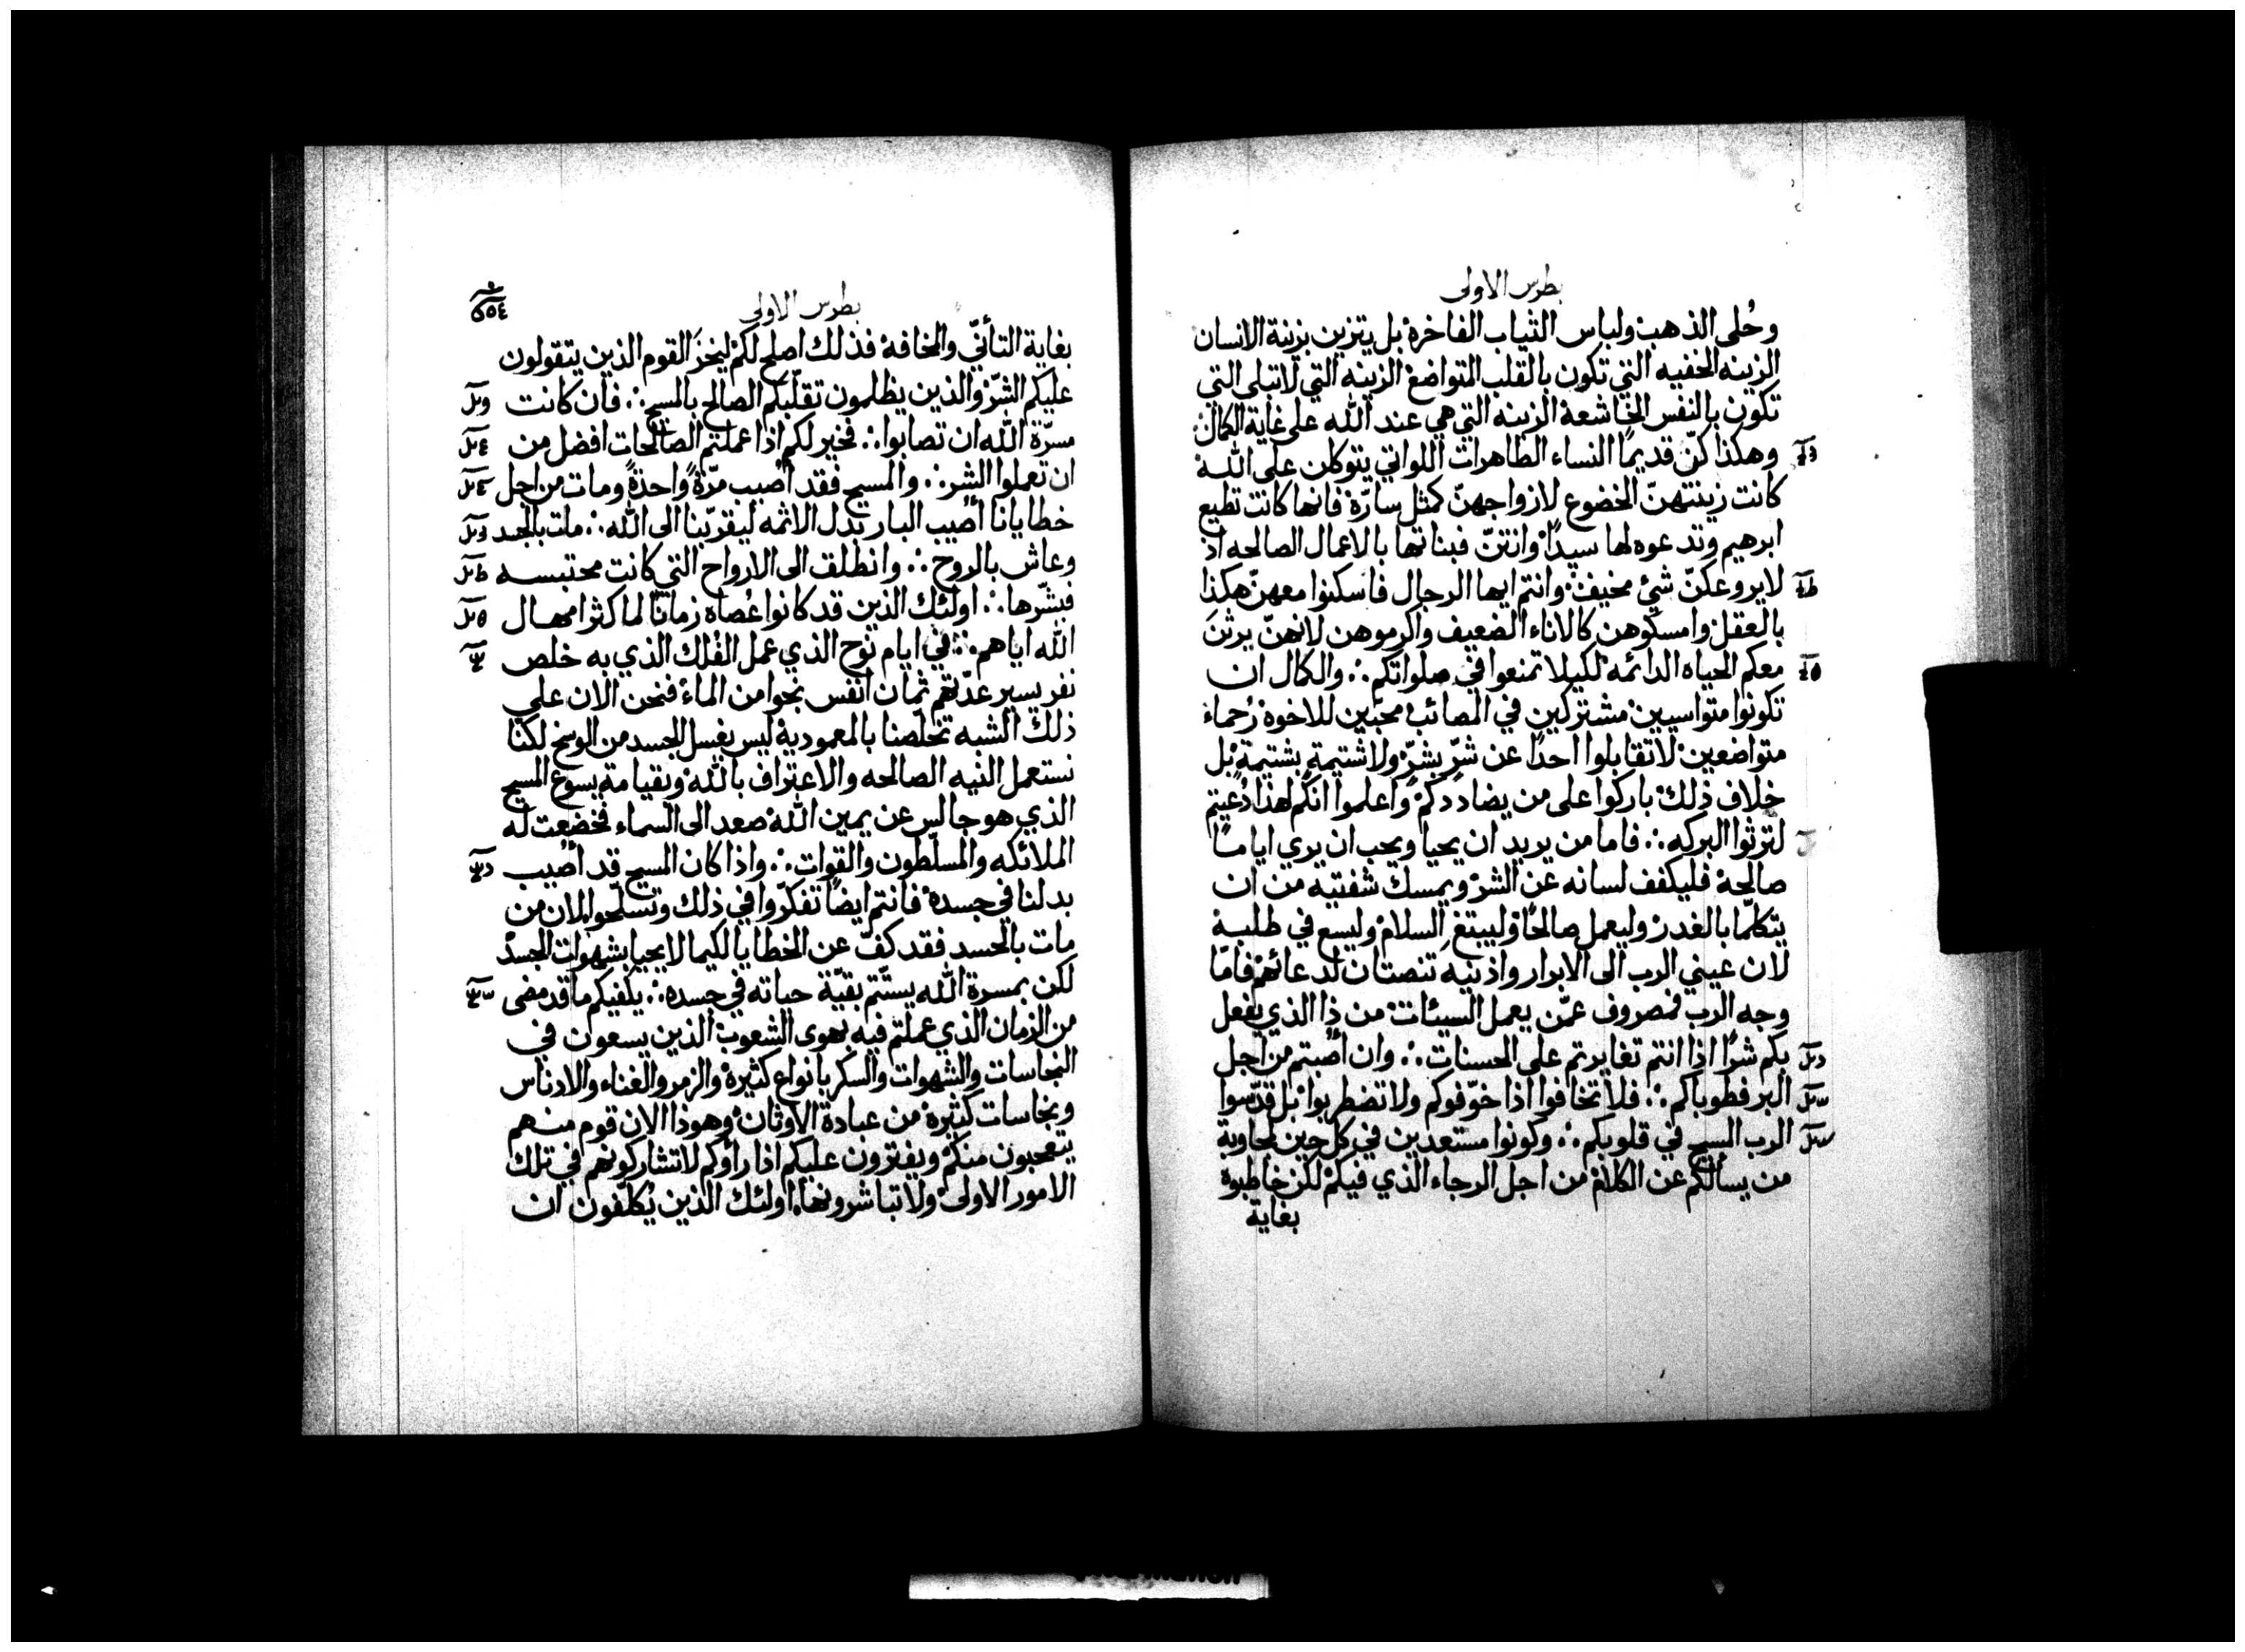 بطرس الاولى
وحُلى الذهب ولباس الثياب الفاخرة بل يتزين بزينة الانسان
الزينه الخفيه التي تكون بالقلب المتواضع الزينه التي لا تبلى التي
تكون بالنفس الخاشعة الزينه التي هي عند الله على غاية الكمال
وهكذا كنّ قديمًا النساء الطاهرات اللواتي يتوكلن على الله
كانت زينتهنّ الخضوع لازواجهنّ كمثل سارّة فانها كانت تطيع
ابرهيم وتدعوه لها سيدًا وانتنّ فبناتها بالاعمال الصالحه اذ
لا يروعكنّ شئ مخيف وانتم ايها الرجال فاسكنوا معهنّ هكذا
بالعقل وامسكوهن كالاناء الضعيف واكرموهن لانهنّ يرثنَ
معكم الحياه الدائمه لكيلا تمنعوا في صلواتكم ∴ والكمال ان
تكونوا متواسيين مشتركين في المصائب محبّين للاخوة رُحماء
متواضعين لا تقابلوا احدًا عن شرّ بشرّ ولا شتيمة بشتيمة بل
خلاف ذلك باركوا على من يضاددكم واعلموا انكم لهذا دُعيتم
لترثوا البركه ∴ فاما من يريد ان يحيا ويحب ان يري ايامًا
صالحة فليكفف لسانه عن الشر ويمسك شفتيه من ان
يتكلّما بالغدر وليعمل صالحًا وليبتغ السلام وليسع في طلبه
لان عيني الرب الى الابرار واذنيه تنصتان لدعائهم فامّا
وجه الرب فمصروف عمّن يعمل السيئات من ذا الذي يفعل
بكم شرًا اذا انتم تغايرتم على الحسنات ∴ وان اُصبتم من اجل
البر فطوباكم ∴ فلا تخافوا اذا خوّفوكم ولا تضطربوا بل قدّسوا
الرب المسيح في قلوبكم ∴ وكونوا مستعدين في كل حين لمجاوبة
من يسالكم عن الكلام من اجل الرجاء الذي فيكم لكن خاطبوه
بغاية
بطرس الاولى
بغاية التأنّي والمخافة فذلك اصلح لكم ليخزَ القوم الذين يتقولون
عليكم الشرّ والذين يظلمون تقلّبكم الصالح بالمسيح ∴ فان كانت
مسرّة الله ان تصابوا ∴ فخير لكم اذا عملتم الصالحات افضل من
ان تعملوا الشر ∴ والمسيح فقد اُصيب مرّةً واحدةً ومات من اجل
خطايانا اُصيب البار بدل الاثمه ليقرّبنا الى الله ∴ مات بالجسد
وعاش بالروح ∴ وانطلق الى الارواح التي كانت محتبسه
فبشّرها ∴ اولئك الذين قد كانوا عُصاه زمانًا لما كثر امهال
الله اياهم ∴ في ايام نوح الذي عمل الفُلك الذي به خلص
نفر يسير عدّتهم ثمان انفس نجوا من الماء فنحن الان على
ذلك الشبه تخلّصنا بالمعمودية ليس بغسل الجسد من الوسخ لكنا
نستعمل النيه الصالحه والاعتراف بالله وبقيامة يسوع المسيح
الذي هو جالس عن يمين الله صعد الى السماء فخضعت له
الملائكه والمسلّطون والقوات ∴ واذا كان المسيح قد اُصيب
بدلنا في جسده فانتم ايضًا تفكرّوا في ذلك وتسلّحوا لان من
مات بالجسد فقد كفّ عن الخطايا لكيما لا يحيا بشهوات الجسد
لكن بمسرة الله يستتم بقيّة حياته في جسده ∴ يكفيكم ما قد مضى
من الزمان الذي عملتم فيه بهوى الشعوب الذين يسعون في
النجاسات والشهوات والسكر بانواع كثيرة والزمر والغناء والادناس
ونجاسات كثيره من عبادة الاوثان وهوذا الان قوم منهم
يتعجبون منكم ويفترون عليكم اذا راوكم لا تشاركونهم في تلك
الامور الاولى ولا تباشرونها اولئك الذين يُكلّفون ان